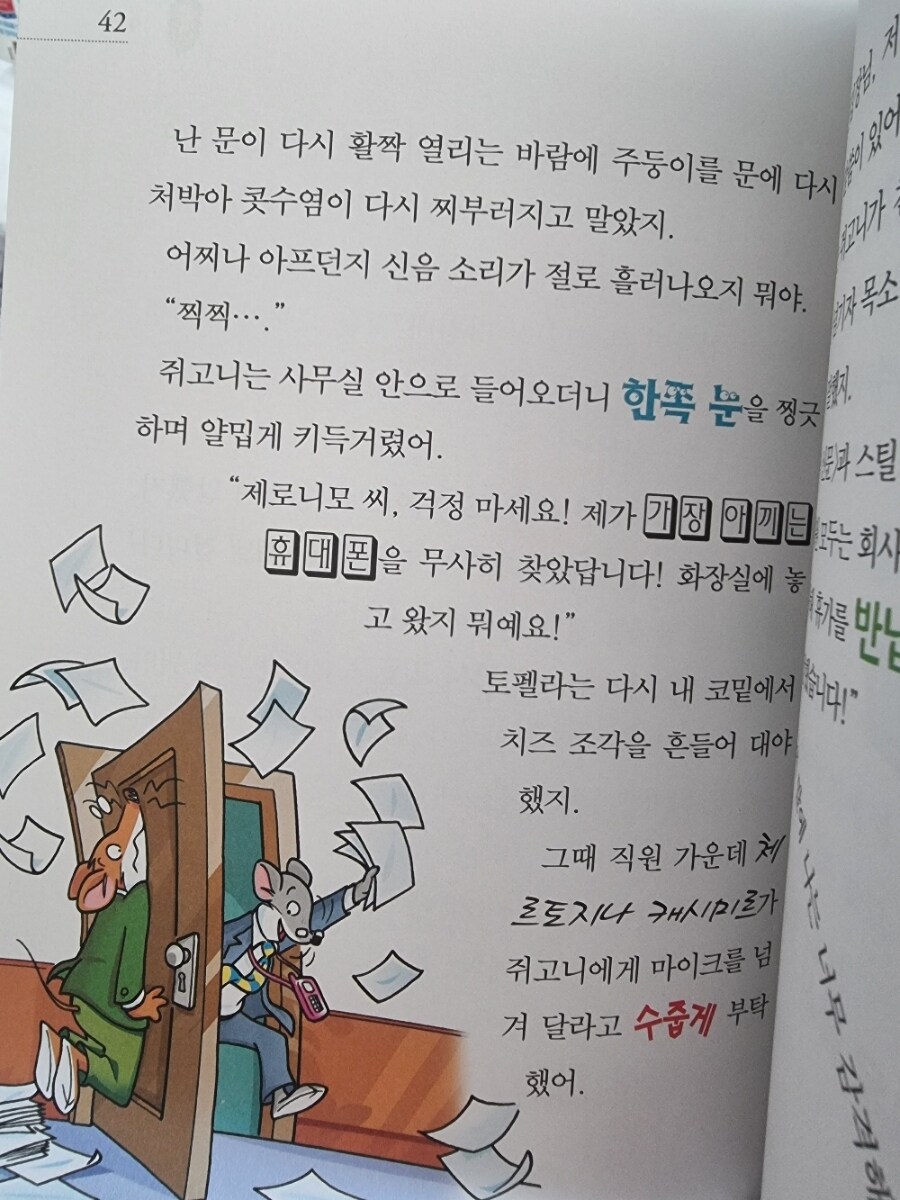 42
난 문이 다시 활짝 열리는 바람에 주둥이를 문에 다시
처박아 콧수염이 다시 찌부러지고 말았지.
어찌나 아프던지 신음 소리가 절로 흘러나오지 뭐야.
“찍찍….”
쥐고니는 사무실 안으로 들어오더니 한쪽 눈을 찡긋
하며 얄밉게 키득거렸어.
“제로니모 씨, 걱정 마세요! 제가 가장 아끼는
휴대폰을 무사히 찾았답니다! 화장실에 놓
고 왔지 뭐예요!”
토펠라는 다시 내 코밑에서
치즈 조각을 흔들어 대야
했지.
그때 직원 가운데 체
르토지나 캐시미르가
쥐고니에게 마이크를 넘
겨 달라고 수줍게 부탁
했어.
목소
스틸
모두는 회사
휴가를
나는 너무 감격해